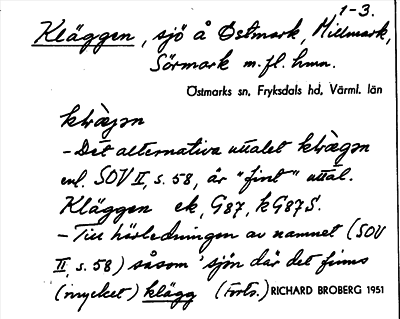 1-3.
Kläggen, sjö å Östmark, Millmark,
Sörmark m.fl. hmn.
Östmarks sn, Fryksdals hd, Värml. län
klæ̀gən
- Det alternativa uttalet klæ̀gən
enl. SOV II, s. 58, är "fint" uttal.
Kläggen ek, G87, kG87S.
- Till härledningen av namnet (SOV
II, s. 58) såsom 'sjön där det finns
(mycket) klägg (forts.) RICHARD BROBERG 1951